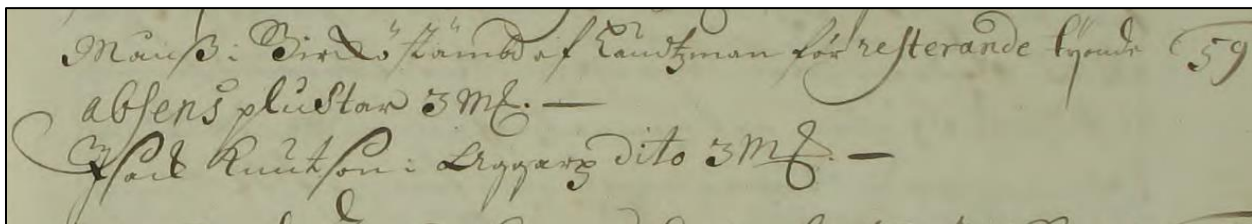 Månß i Birkö stämbd af Ländzman för resterande tyende 59
absens plustar 3 m.
Isack Knutson i Aggarp dito 3 m.